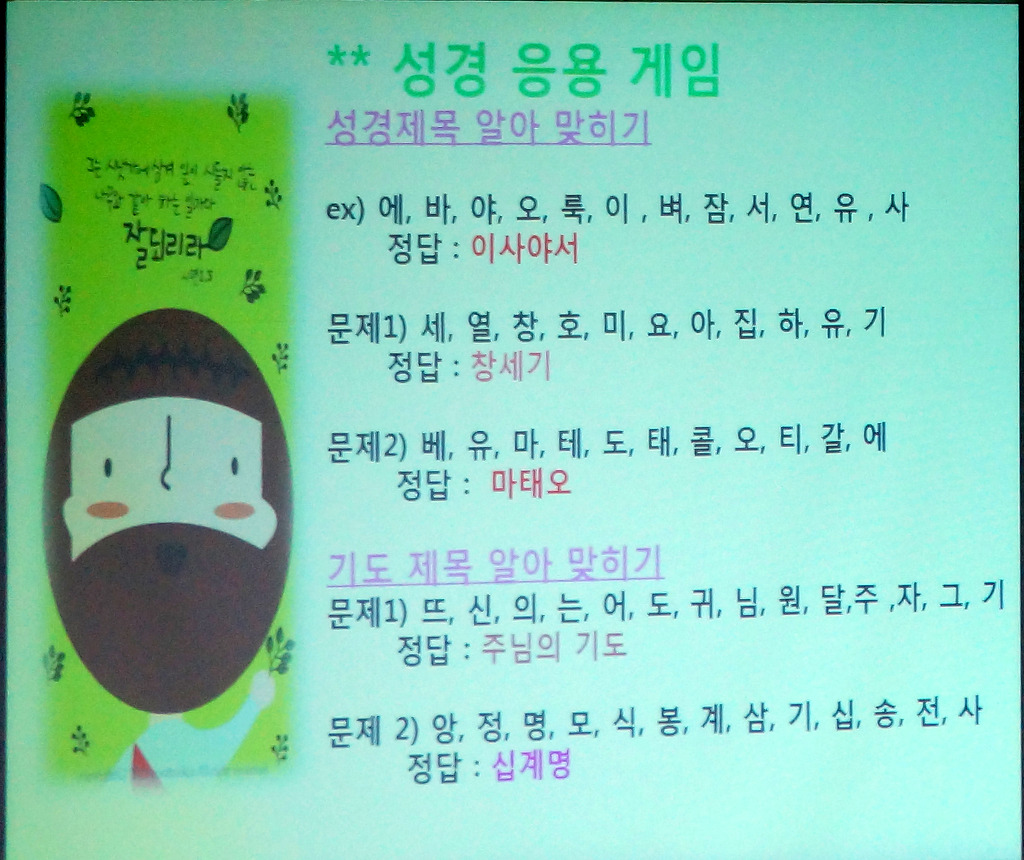 ** 성경 응용 게임
성경제목 알아 맞히기
ex) 에, 바, 야, 오, 룩, 이 , 벼, 잠, 서, 연, 유 , 사
정답 : 이사야서
문제1) 세, 열, 창, 호, 미, 요, 아, 집, 하, 유, 기
정답 : 창세기
문제2) 베, 유, 마, 테, 도, 태, 콜, 오, 티, 갈, 에
정답 : 마태오
기도 제목 알아 맞히기
문제1) 뜨, 신, 의, 는, 어, 도, 귀, 님, 원, 달,주 ,자, 그, 기
정답 : 주님의 기도
문제 2) 앙, 정, 명, 모, 식, 봉, 계, 삼, 기, 십, 송, 전, 사
정답 : 십계명
그는 시냇가에 심겨 잎이 시들지 않는
나무와 같아 하는 일마다
잘되리라